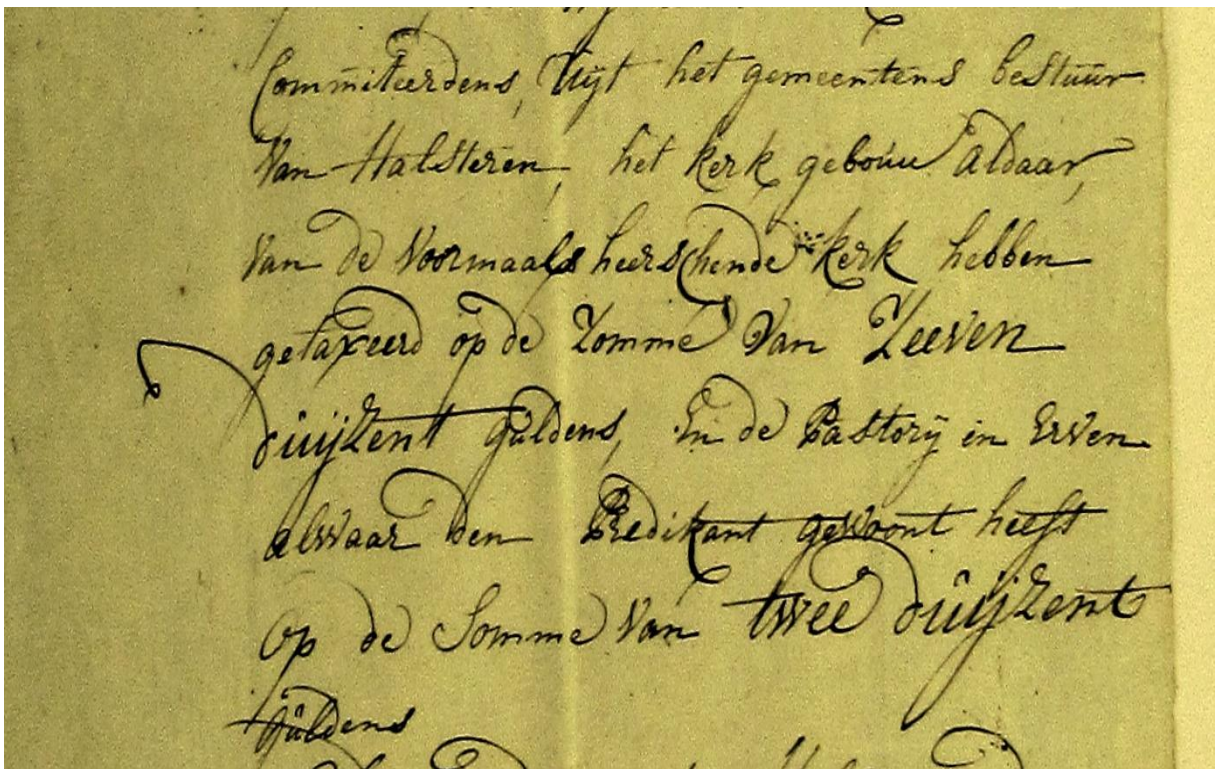 Commiteerdens, Uijt het gemeentens bestuur
Van Halsteren, het kerk gebouw aldaar,
Van de Voormaals heerschende kerk hebben
getaxeerd op de Zomme Van Zeeven
duijZent guldens, En de Pastorij en Erven
alwaar den Predikant gewoont heeft
Op de Somme Van twee duijZent
Guldens